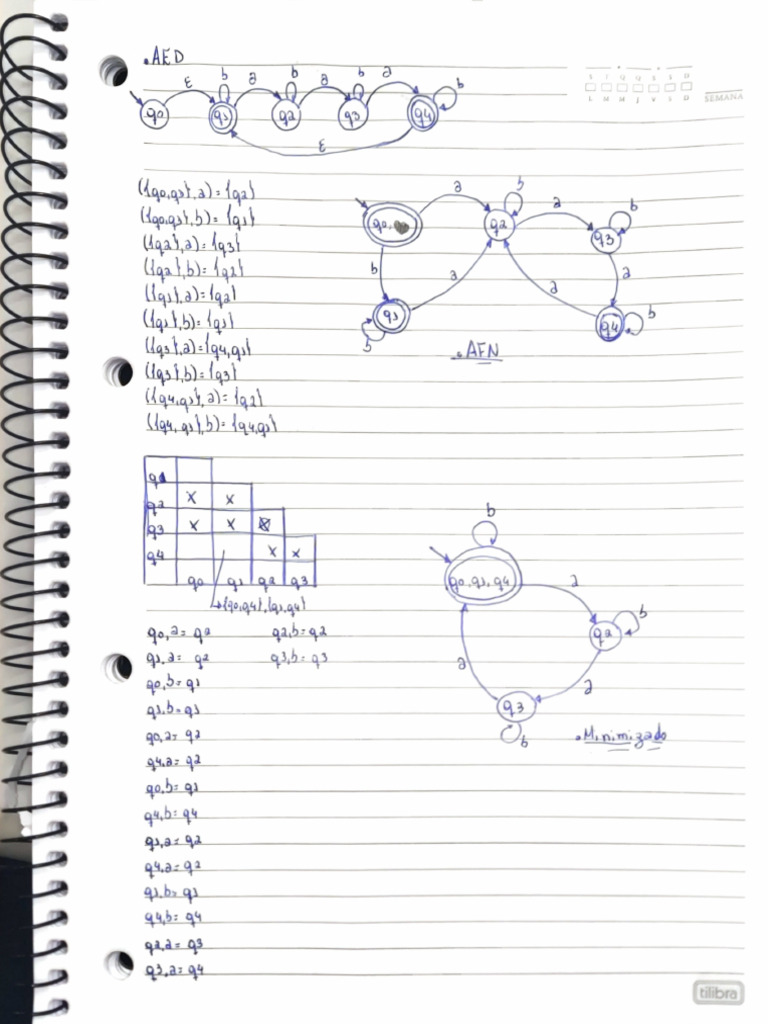 .AED
ε b a b a b a b
q0 q1 q2 q3 q4
ε
S T Q Q S S D
L M M J V S D
SEMANA
({q0,q1},a) = {q2}
({q0,q1},b) = {q1}
({q2},a) = {q3}
({q2},b) = {q2}
({q1},a) = {q2}
({q1},b) = {q1}
({q3},a) = {q4,q1}
({q3},b) = {q3}
({q4,q1},a) = {q2}
({q4,q1},b) = {q4,q1}
a b a b
q0, q2 q3
b a a a
q1 q4 b
b
.AFN
q1
q2 x x
q3 x x x
q4 x x
q0 q1 q2 q3
{q0,q4},{q1,q4}
b
q0,q1,q4 a
q2 b
a a
q3
b
.Minimizado
q0,a = q2 q2,b = q2
q1,a = q2 q3,b = q3
q0,b = q1
q1,b = q1
q0,a = q2
q4,a = q2
q0,b = q1
q4,b = q4
q1,a = q2
q4,a = q2
q1,b = q1
q4,b = q4
q2,a = q3
q3,a = q4
tilibra